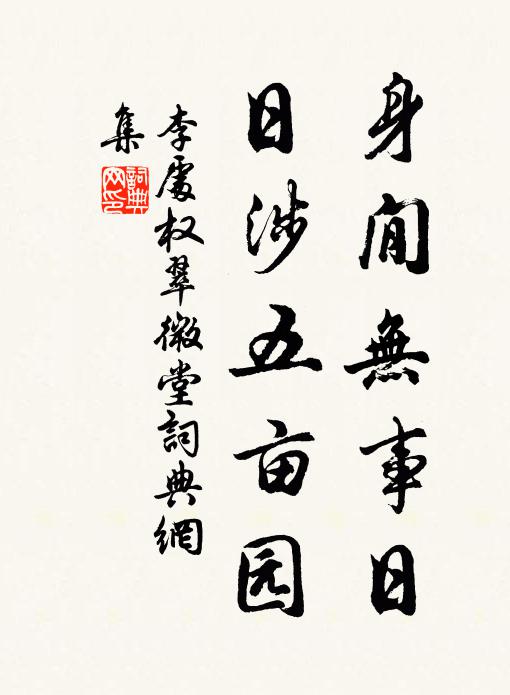 身閒無事日
日涉五亩园
李處权翠微堂詞典網
集
詞典
网印